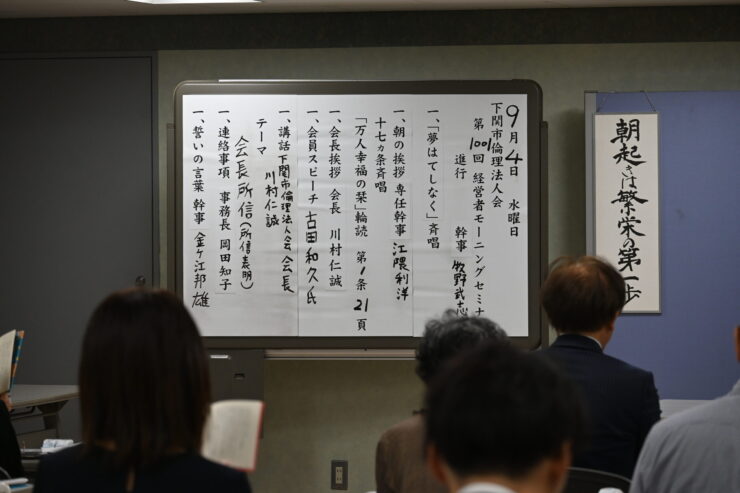 9月4日 水曜日
下関市倫理法人会
第1001回 経営者モーニングセミナ
進行 幹事 牧野武志
一、「夢はてしなく」斉唱
一、朝の挨拶 専任幹事 江隈利洋
十七ヵ条斉唱
「万人幸福の栞」輪読 第1条 21頁
一、会長挨拶 会長 川村仁誠
一、会員スピーチ 古田和久氏
一、講話 下関市倫理法人会 会長
川村仁誠
テーマ
会長所信(所信表明)
一、連絡事項 事務長 岡田知子
一、誓いの言葉 幹事 金ケ江邦雄
朝起きは繁栄の第一歩